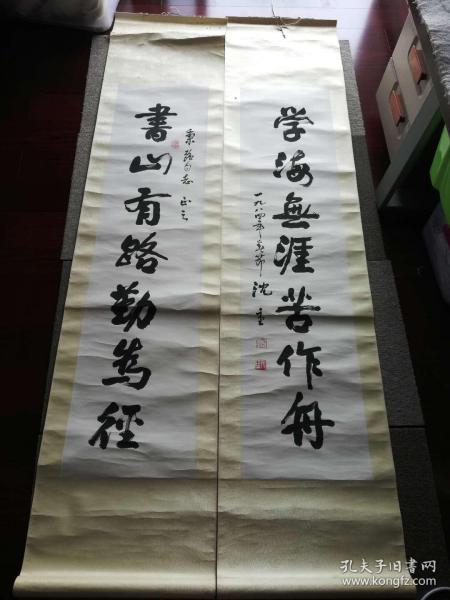 書山有路勤為徑
学海無涯苦作舟
同志 正之
一九八四年春节 沈
孔夫子旧书网
www.kongfz.com